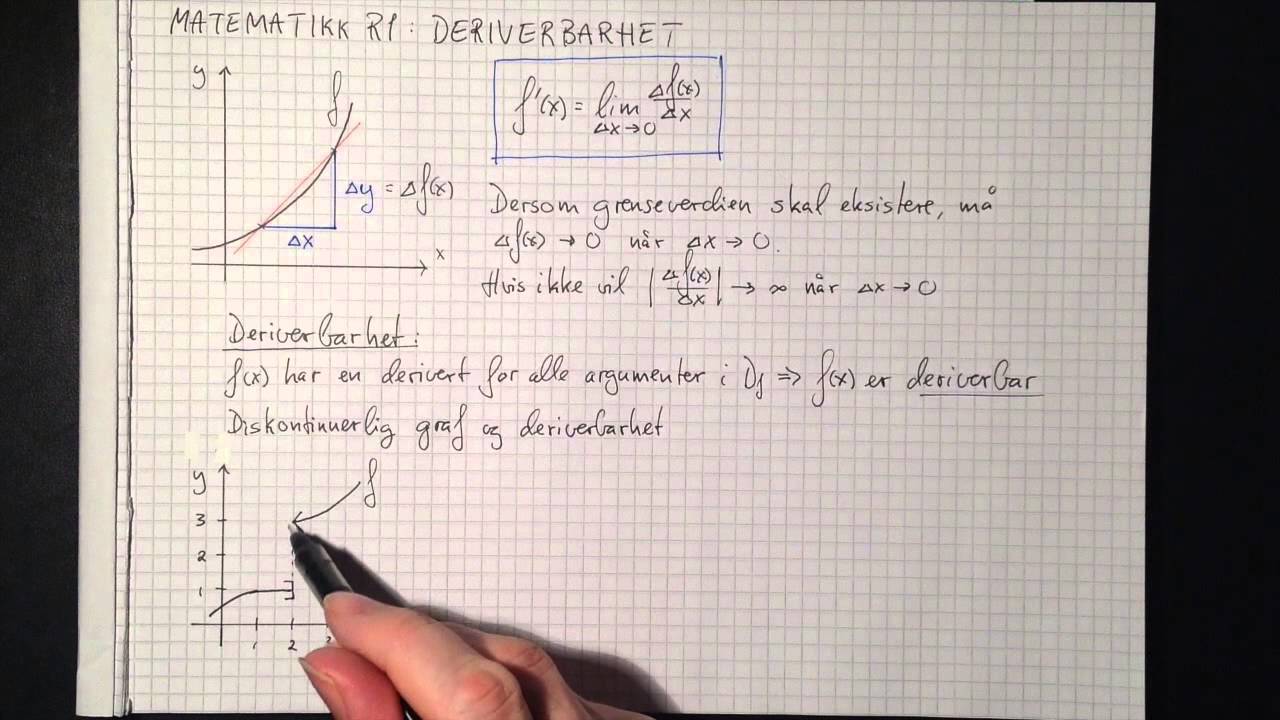 MATEMATIKK R1: DERIVERBARHET
y
f
f'(x) = lim Δx→0 Δf(x)/Δx
Δy = Δf(x)
Δx
x
Dersom grenseverdien skal eksistere, må
Δf(x) → 0 når Δx → 0.
Hvis ikke vil |Δf(x)/Δx| → ∞ når Δx → 0
Deriverbarhet:
f(x) har en derivert for alle argumenter i Df ⇒ f(x) er deriverbar
Diskontinuerlig graf og deriverbarhet
y
f
3
2
1
1 2